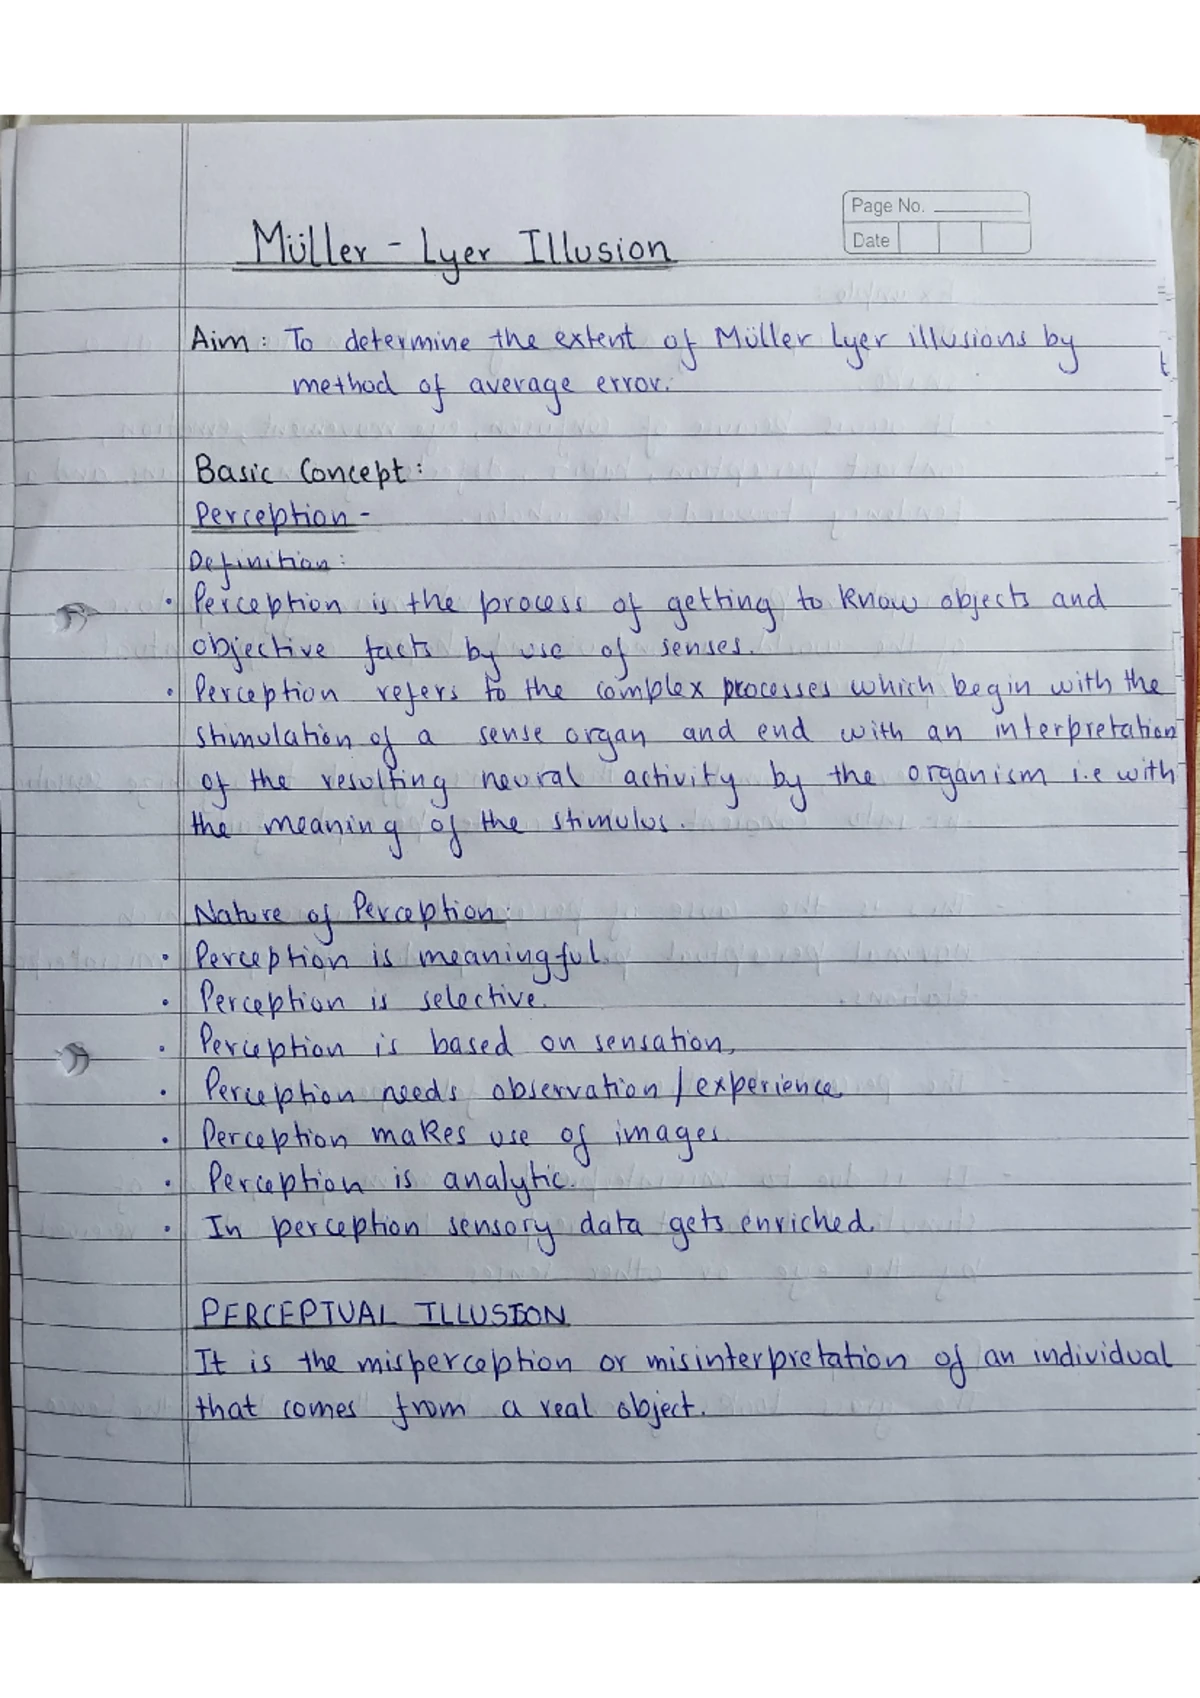 Page No.
Date
Müller - Lyer Illusion
Aim : To determine the extent of Müller Lyer illusions by
method of average error.
Basic Concept :
Perception -
Definition :
• Perception is the process of getting to know objects and
objective facts by use of senses.
• Perception refers to the complex processes which begin with the
stimulation of a sense organ and end with an interpretation
of the resulting neural activity by the organism i.e with
the meaning of the stimulus.
Nature of Perception :
• Perception is meaningful.
• Perception is selective.
• Perception is based on sensation.
• Perception needs observation / experience.
• Perception makes use of images.
• Perception is analytic.
• In perception sensory data gets enriched.
PERCEPTUAL ILLUSION
It is the misperception or misinterpretation of an individual
that comes from a real object.